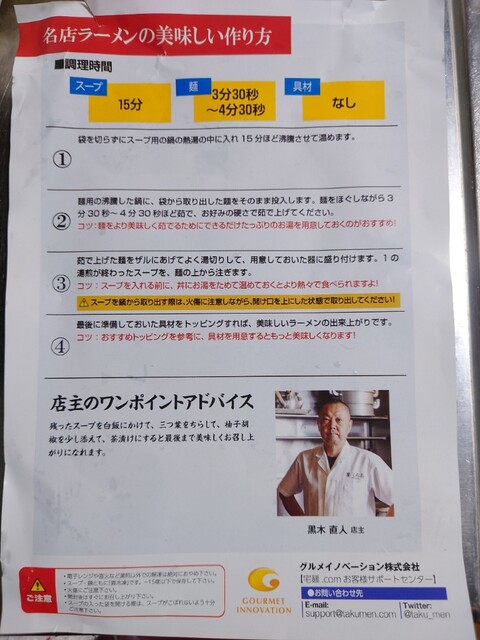 名店ラーメンの美味しい作り方
■調理時間
スープ
15分
麺
3分30秒
～4分30秒
具材
なし
① 袋を切らずにスープ用の鍋の熱湯の中に入れ15分ほど沸騰させて温めます。
② 麺用の沸騰した鍋に、袋から取り出した麺をそのまま投入します。麺をほぐしながら3
分30秒～4分30秒ほど茹で、お好みの硬さで茹で上げてください。
コツ：麺をより美味しく茹でるためにできるだけたっぷりのお湯を用意しておくのがおすすめ!
③ 茹で上げた麺をザルにあげてよく湯切りして、用意しておいた器に盛り付けます。1の
湯煎が終わったスープを、麺の上から注ぎます。
コツ：スープを入れる前に、丼にお湯をためて温めておくとより熱々で食べられますよ!
⚠スープを鍋から取り出す際は、火傷に注意しながら、開け口を上にした状態で取り出してください!
④ 最後に準備しておいた具材をトッピングすれば、美味しいラーメンの出来上がりです。
コツ：おすすめトッピングを参考に、具材を用意するともっと美味しくなります!
店主のワンポイントアドバイス
残ったスープを白飯にかけて、三つ葉をちらして、柚子胡
椒を少し添えて、茶漬けにすると最後まで美味しくお召し上
がりになれます。
黒木 直人 店主
ご注意
・火傷にご注意ください。
・開封後はすぐにお召し上がり下さい。
・スープの入った袋を開ける際は、スープがこぼれないよう十分
ご注意下さい。
GOURMET
INNOVATION
グルメイノベーション株式会社
【宅麺.comお客様サポートセンター】
●お問い合わせ先
E-mail:
support@takumen.com
Twitter:
@taku_men